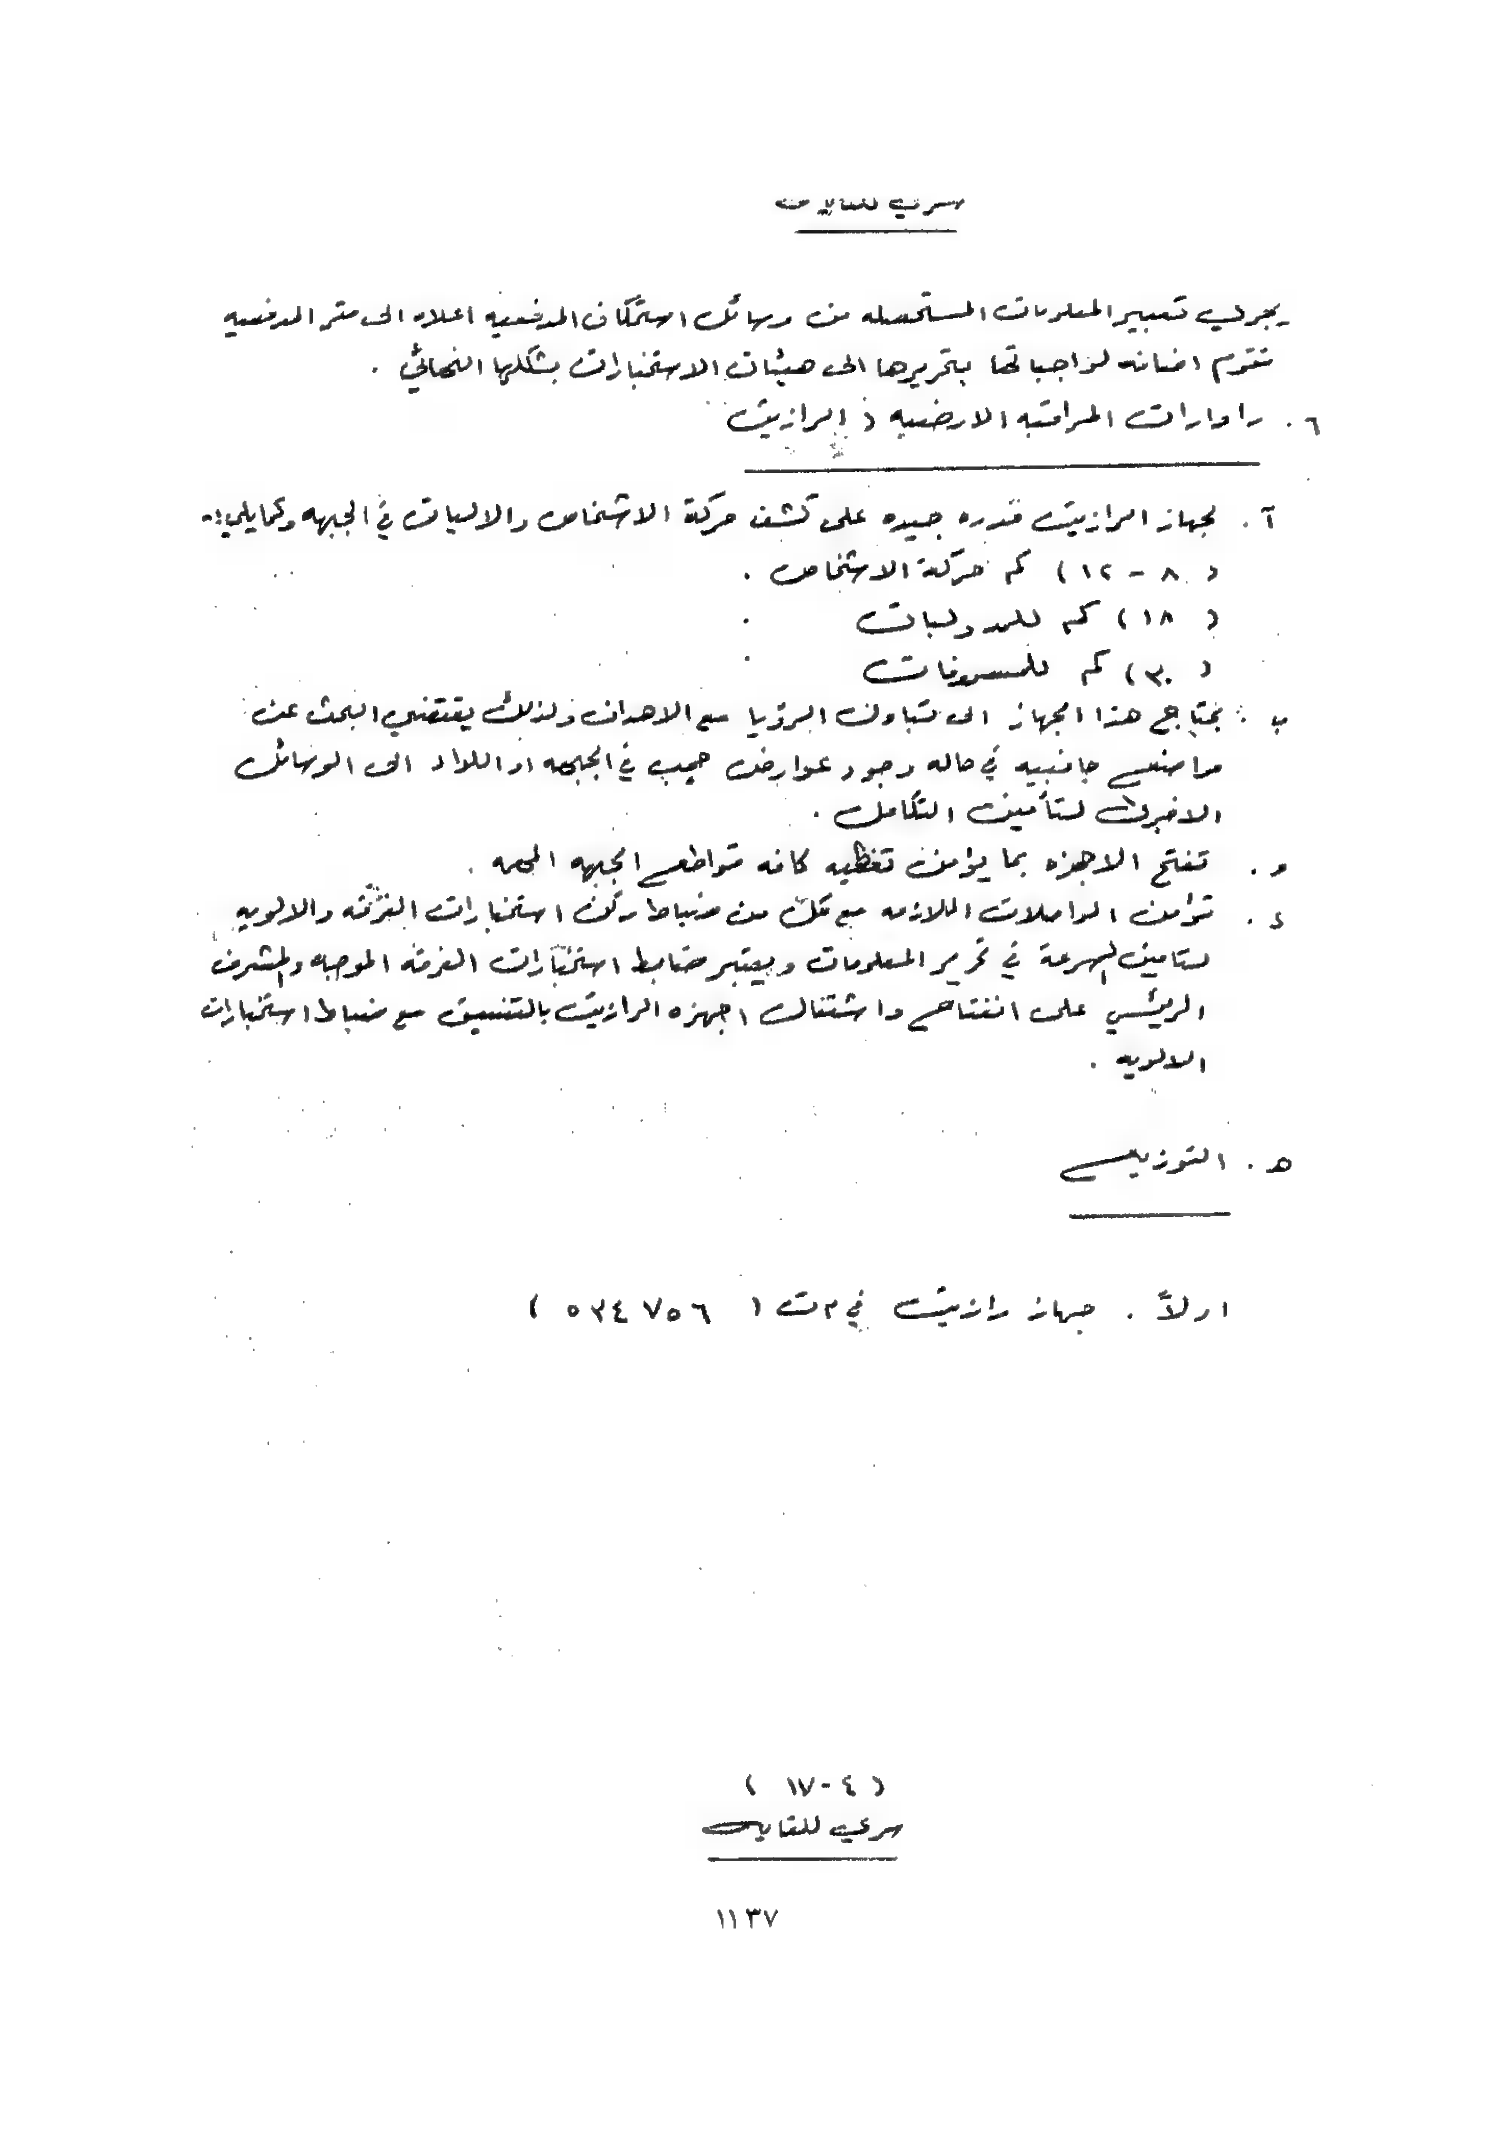 سري للغايه
يجري تمرير المعلومات المستحصله من وسائل استمكان المدفعيه اعلاه الى مقر المدفعيه
تقوم اضافه لواجباتها بتحريرها الى هيئات الاستخبارات بشكلها النهائي .
٦ . رادارات المراقبه الارضيه ( الرازيت
آ . لجهاز الرازيت قدره جيده على كشف حركة الاشخاص والاليات في الجبهه وكمايلي :-
( ٨ - ١٢ ) كم حركة الاشخاص .
( ١٨ ) كم للمدولبات .
( ٣٠ ) كم للمسرفات .
ب . يحتاج هذا الجهاز الى تبادل الرؤيا مع الاهداف ولذلك يقتضي البحث عن
مواضع جانبيه في حاله وجود عوارض حجب في الجبهه او اللواء الى الوسائل
الاخرى لتأمين التكامل .
حـ . تفتح الاجهزه بما يؤمن تغطيه كافه قواطع الجبهه المهمه .
د . تؤمن المواصلات اللازمه مع كل من ضباط ركن استخبارات الفرقه والالويه
لتامين السرعة في تمرير المعلومات ويعتبر ضابط استخبارات الفرقه الموجه والمشرف
الرئيسي على انفتاح واشتغال اجهزه الرازيت بالتنسيق مع ضباط استخبارات
الالويه .
هـ . التوزيع
اولاً . جهاز رازيت في م ت ( ٥٣٤٧٥٦ )
( ٤-١٧ )
سري للغايه
١١٣٧